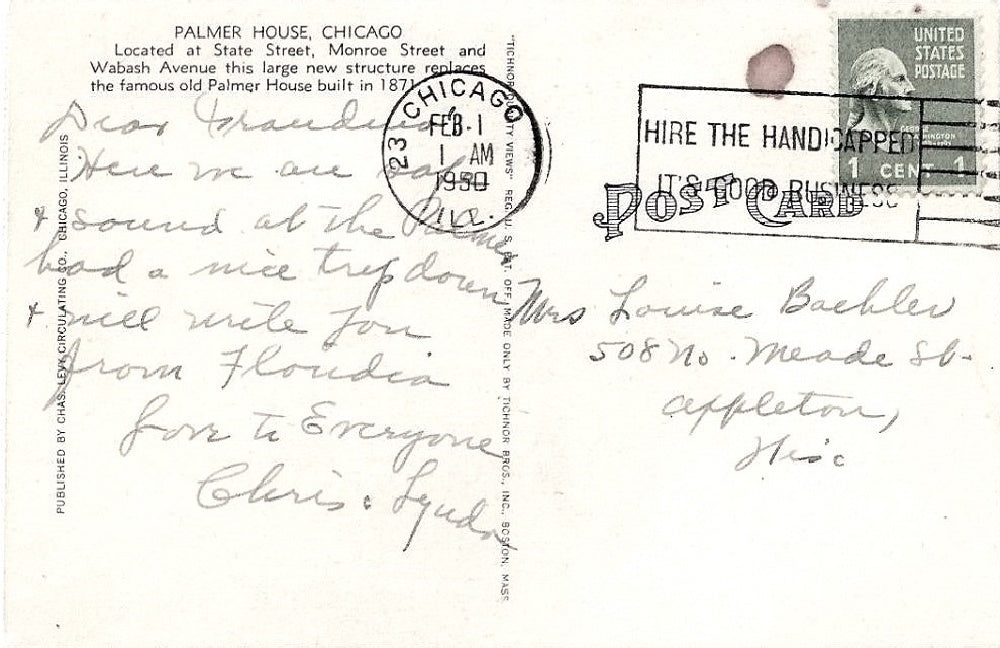 PALMER HOUSE, CHICAGO
Located at State Street, Monroe Street and
Wabash Avenue this large new structure replaces
the famous old Palmer House built in 1871
Dear Grandma
Here we are safe
& sound at the Palmer
had a nice trip down
& will write you
from Flouida
Love to Everyone
Chris & Lynda
PUBLISHED BY CHAS. LEVY CIRCULATING CO., CHICAGO, ILLINOIS
"TICHNOR QUALITY VIEWS" REG. U. S. PAT. OFF. MADE ONLY BY TICHNOR BROS., INC., BOSTON, MASS.
CHICAGO
23
FEB 1
1 AM
1950
ILL.
HIRE THE HANDICAPPED
IT'S GOOD BUSINESS
UNITED
STATES
POSTAGE
GEORGE
WASHINGTON
1 CENT 1
POST CARD
Mrs Louise Baehler
508 No. Meade St.
Appleton,
Wisc